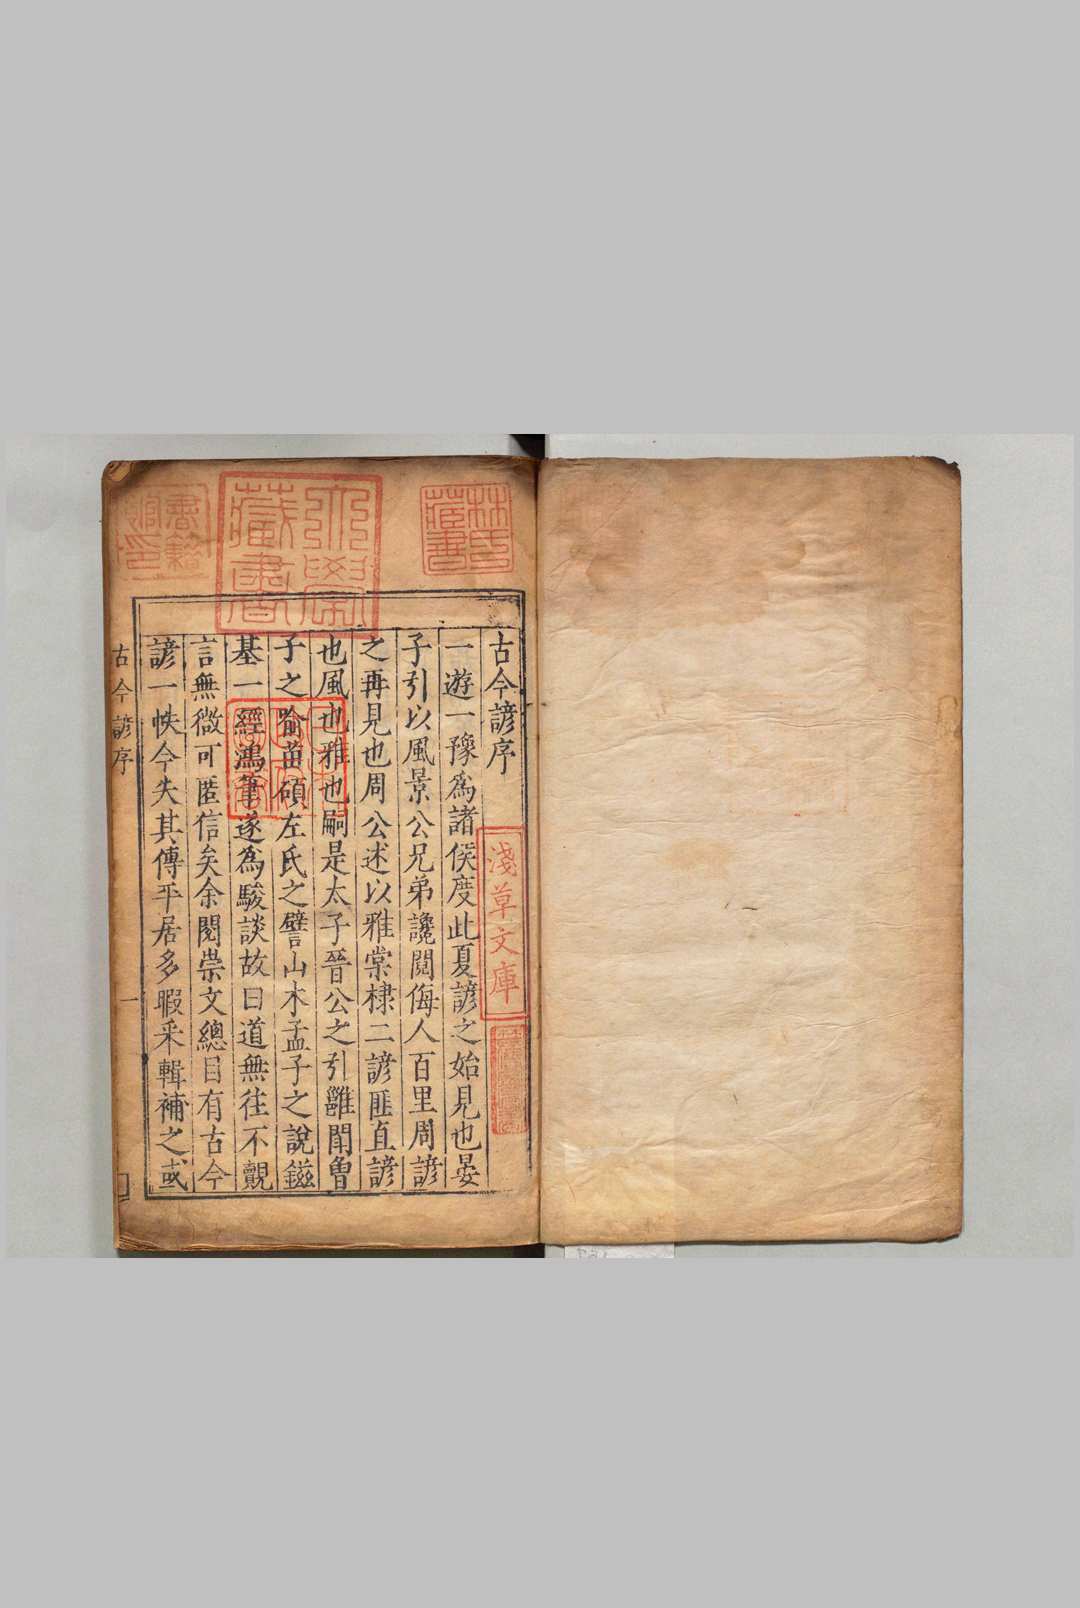 古今諺序
一遊一豫爲諸侯度此夏諺之始見也晏
子引以風景公兄弟讒鬩侮人百里周諺
之再見也周公述以雅棠棣二諺匪直諺
也風也雅也嗣是太子晉公之引雝閈魯
子之喻苗碩左氏之譬山木孟子之說鎡
基一經鴻筆遂爲駿談故曰道無往不覿
言無微可匿信矣余閱崇文總目有古今
諺一帙今失其傳平居多暇采輯補之或
古今諺序
一
林氏藏書
淺草文庫
藏書
書籍